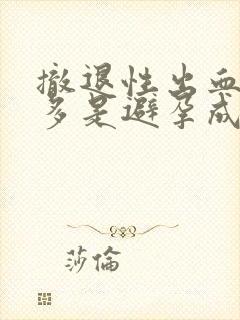 撤退性出血
多是避孕成
莎倫